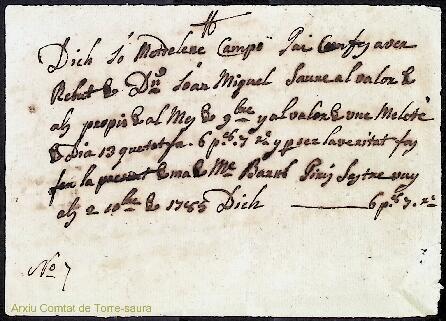 Dich Jo Madelene Campo y Pai Confes aver
Rebut de Dn Joan Miquel Saura al valor de
als propis de al Mes de 9bre y al valor de une
de Dia 13 que tot fa 6 7 y per la veritat fas
fer la present de ma de Me Barth Pins Sastre vuy
als 2 10bre de 1755 Dich 6 7
No 7
Arxiu Comtat de Torre-saura